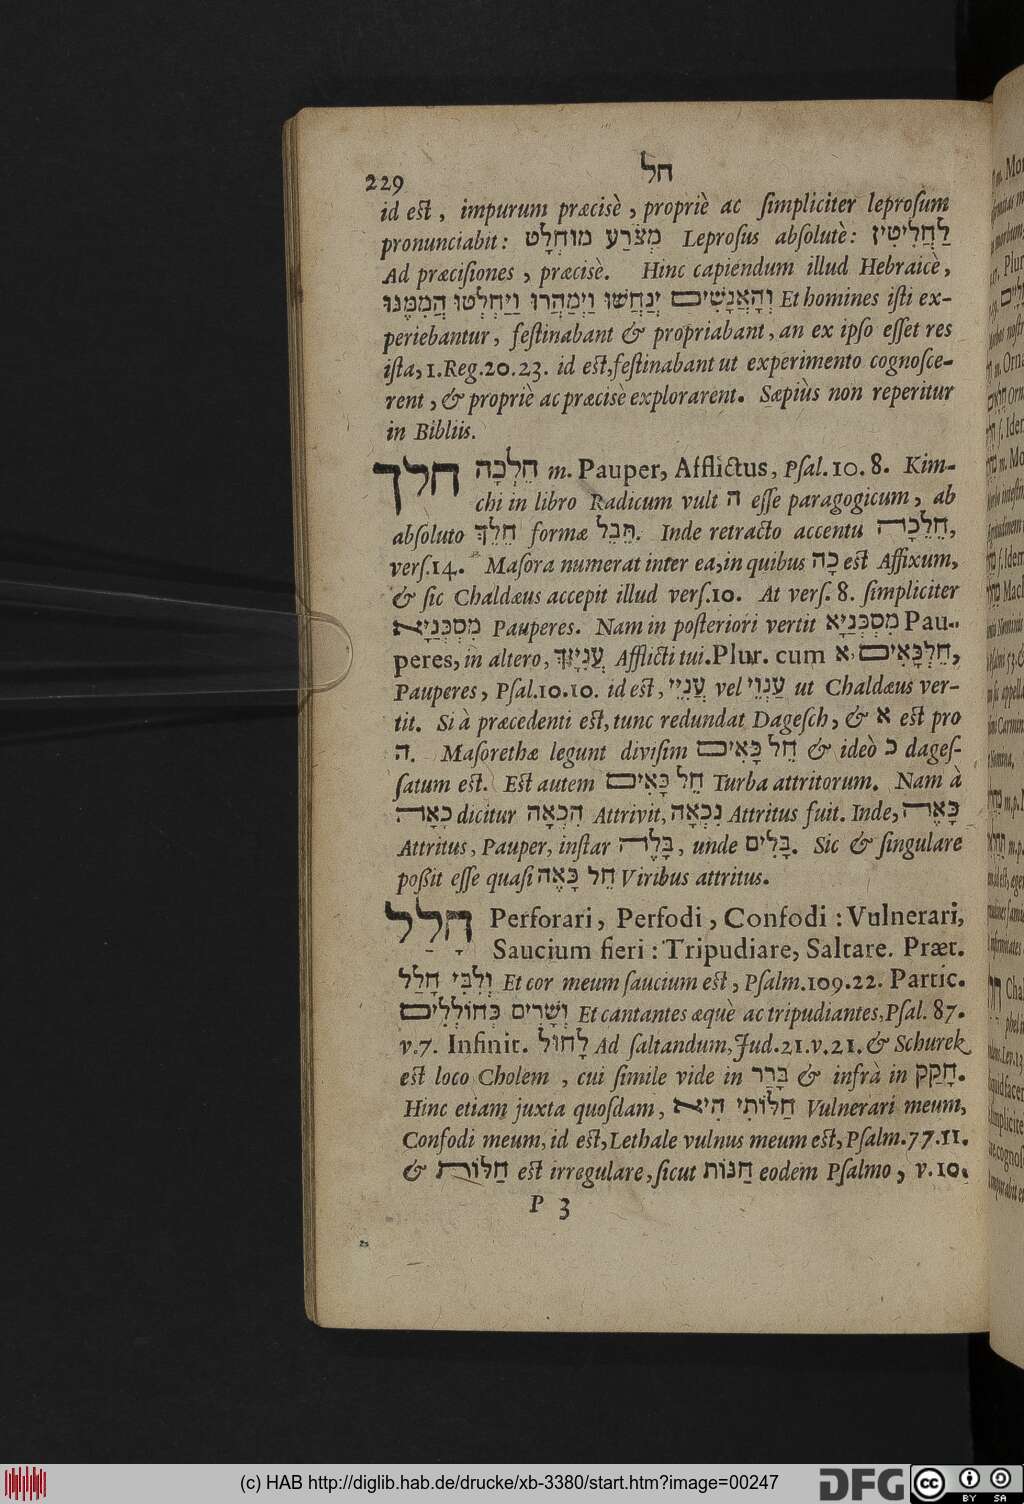 229 חל
id eſt, impurum præcisè, propriè ac ſimpliciter leproſum
pronunciabit: מְצֹרַע מוּחְלָט Leproſus abſolutè: לַחֲלִיטִין
Ad præciſiones, præcisè. Hinc capiendum illud Hebraicè,
וְהָאֲנָשִׁים יְנַחֲשׁוּ וַיְמַהֲרוּ וַיַּחְלְטוּ הֲמִמֶּנּוּ Et homines iſti ex-
periebantur, feſtinabant & propriabant, an ex ipſo eſſet res
iſta, 1. Reg. 20. 23. id eſt, feſtinabant ut experimento cognoſce-
rent, & propriè ac præcisè explorarent. Sæpiùs non reperitur
in Bibliis.
חלך חֵלְכָה m. Pauper, Afflictus, Pſal. 10. 8. Kim-
chi in libro Radicum vult ה eſſe paragogicum, ab
abſoluto חֵלֵךְ formæ תֵּבֵל. Inde retracto accentu חֵלֵכָה,
verſ. 14. Maſora numerat inter ea, in quibus כָה eſt Affixum,
& ſic Chaldæus accepit illud verſ. 10. At verſ. 8. ſimpliciter
מִסְכְּנַיָּא Pauperes. Nam in poſteriori vertit מִסְכְּנַיָּא Pau-
peres, in altero, עֲנִיָּךְ Afflicti tui. Plur. cum א, חֵלְכָּאִים,
Pauperes, Pſal. 10. 10. id eſt, עֲנִיֵּי vel עַנְוֵי ut Chaldæus ver-
tit. Si à præcedenti eſt, tunc redundat Dageſch, & א eſt pro
ה. Maſorethæ legunt diviſim חֵל כָּאִים & ideò כ dageſ-
ſatum eſt. Eſt autem חֵל כָּאִים Turba attritorum. Nam à
כָּאָה dicitur הִכְאָה Attrivit, נִכְאָה Attritus fuit. Inde, כָּאֶה
Attritus, Pauper, inſtar בָּלֶה, unde בָּלִים. Sic & ſingulare
poßit eſſe quaſi חֵל כָּאֶה Viribus attritus.
חָלַל Perforari, Perfodi, Confodi: Vulnerari,
Saucium fieri: Tripudiare, Saltare. Præt.
וְלִבִּי חָלַל Et cor meum ſaucium eſt, Pſalm. 109. 22. Partic.
וְשָׁרִים כְּחוֹלְלִים Et cantantes æquè ac tripudiantes, Pſal. 87.
v. 7. Infinit. לָחוּל Ad ſaltandum, Jud. 21. v. 21. & Schurek
eſt loco Cholem, cui ſimile vide in בָּרַר & infrà in חָקַק.
Hinc etiam juxta quoſdam, חַלּוֹתִי הִיא Vulnerari meum,
Confodi meum, id eſt, Lethale vulnus meum eſt, Pſalm. 77. 11.
& חַלּוֹת eſt irregulare, ſicut חַנּוֹת eodem Pſalmo, v. 10.
P 3
(c) HAB http://diglib.hab.de/drucke/xb-3380/start.htm?image=00247
DFG
cc BY SA